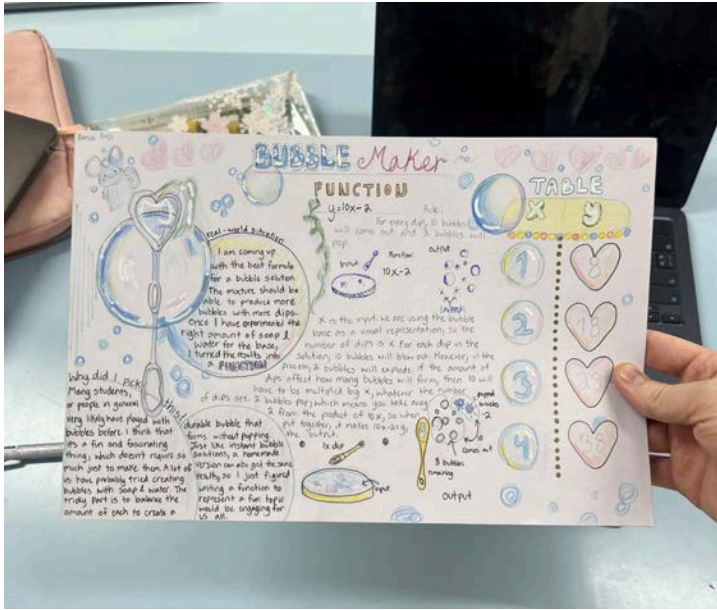 BUBBLE Maker
FUNCTION
y=10x-2
Rule:
For every dip, 10 bubbles
will come out and 2 bubbles will
pop.
input
function:
10x-2
output
real-world situation
I am coming up
with the best formula
for a bubble solution.
The mixture should be
able to produce more
bubbles with more dips.
Once I have experimented the
right amount of soap &
water for the base,
I turned the results into
a FUNCTION
X is the input. We are using the bubble
base as a visual representation, so the
number of dips is x. For each dip in the
solution, 10 bubbles will blow out. However, in the
process, 2 bubbles will explode. If the amount of
dips affect how many bubbles will form, then 10 will
have to be multiplied by x, whatever the number
of dips are. 2 bubbles pop, which means you take away
2 from the product of 10x, so when
put together, it makes 10x-2=y,
the output.
1x dip
input
popped
bubbles
-2
10
comes out
8 bubbles
remaining
output
Why did I pick
this?
Many students,
or people in general
very likely have played with
bubbles before. I think that
it's a fun and fascinating
thing, which doesn't require so
much just to make them. A lot of
us have probably tried creating
bubbles with soap & water. The
tricky part is to balance the
amount of each to create a
durable bubble that
forms without popping.
Just like instant bubble
solutions, a homemade
version can also get the same
results, so I just figured
writing a function to
represent a fun topic
would be engaging for
us all.
TABLE
X y
1 8
2 18
3 28
4 38